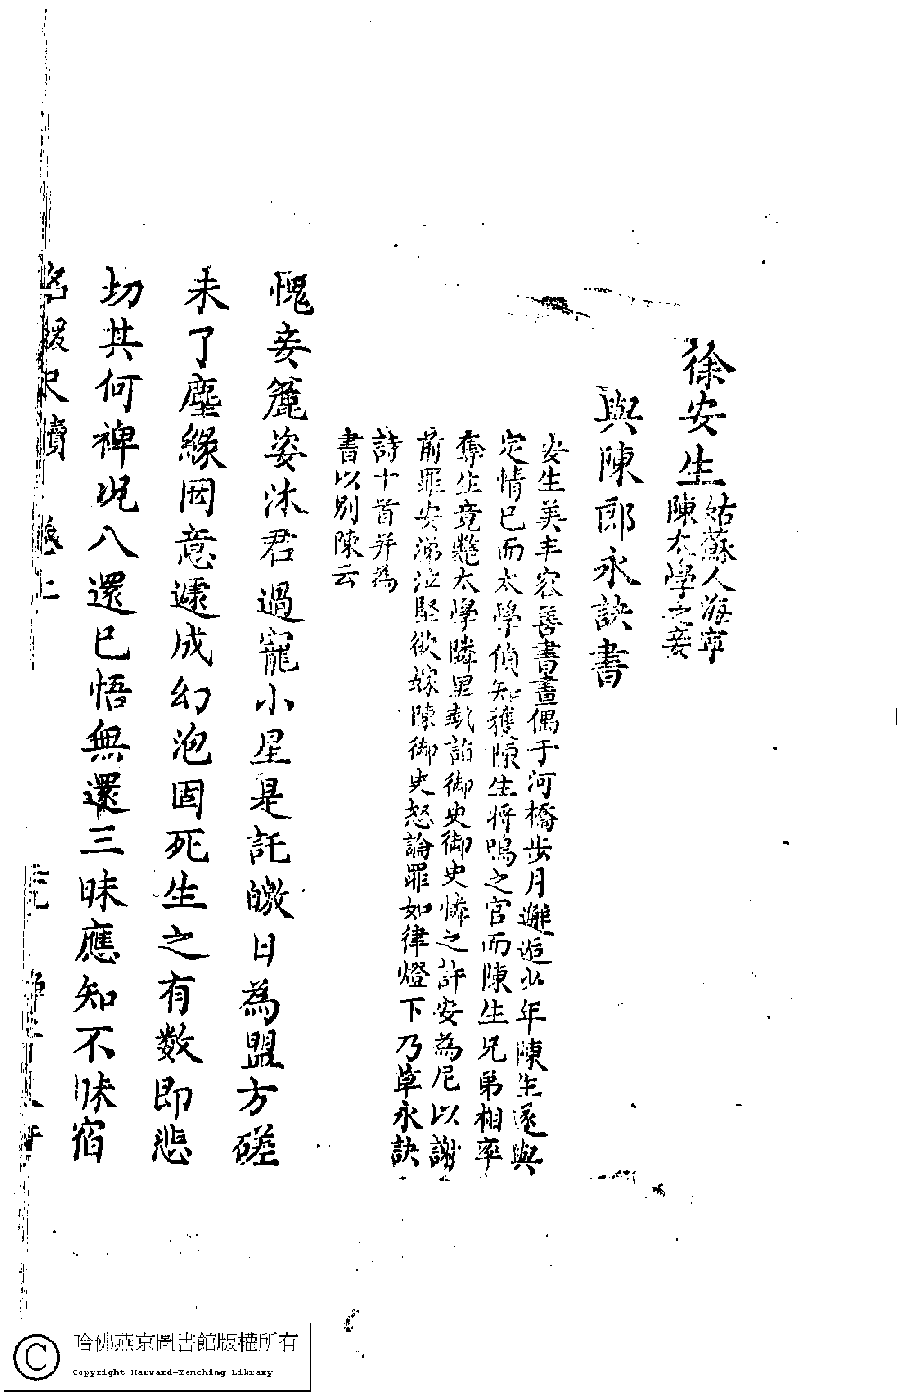 徐安生
姑蘇人海寧
陳太學之妾
與陳郎永訣書
安生美丰容善書畫偶于河橋步月邂逅少年陳生遂與
定情已而太學偵知獲陳生將鳴之官而陳生兄弟相率
奪生竟斃太學隣里執詣御史御史憐之許安為尼以謝
前罪安涕泣堅欲嫁陳御史怒論罪如律燈下乃草永訣
詩十首并為
書以別陳云
愧妾麄姿沐君過寵小星是託皦日為盟方磋
未了塵緣因意遽成幻泡固死生之有数即悲
切其何裨況八還已悟無還三昧應知不昧宿
名媛尺牘 卷上
哈佛燕京圖書館版權所有
Copyright Harvard-Yenching Library